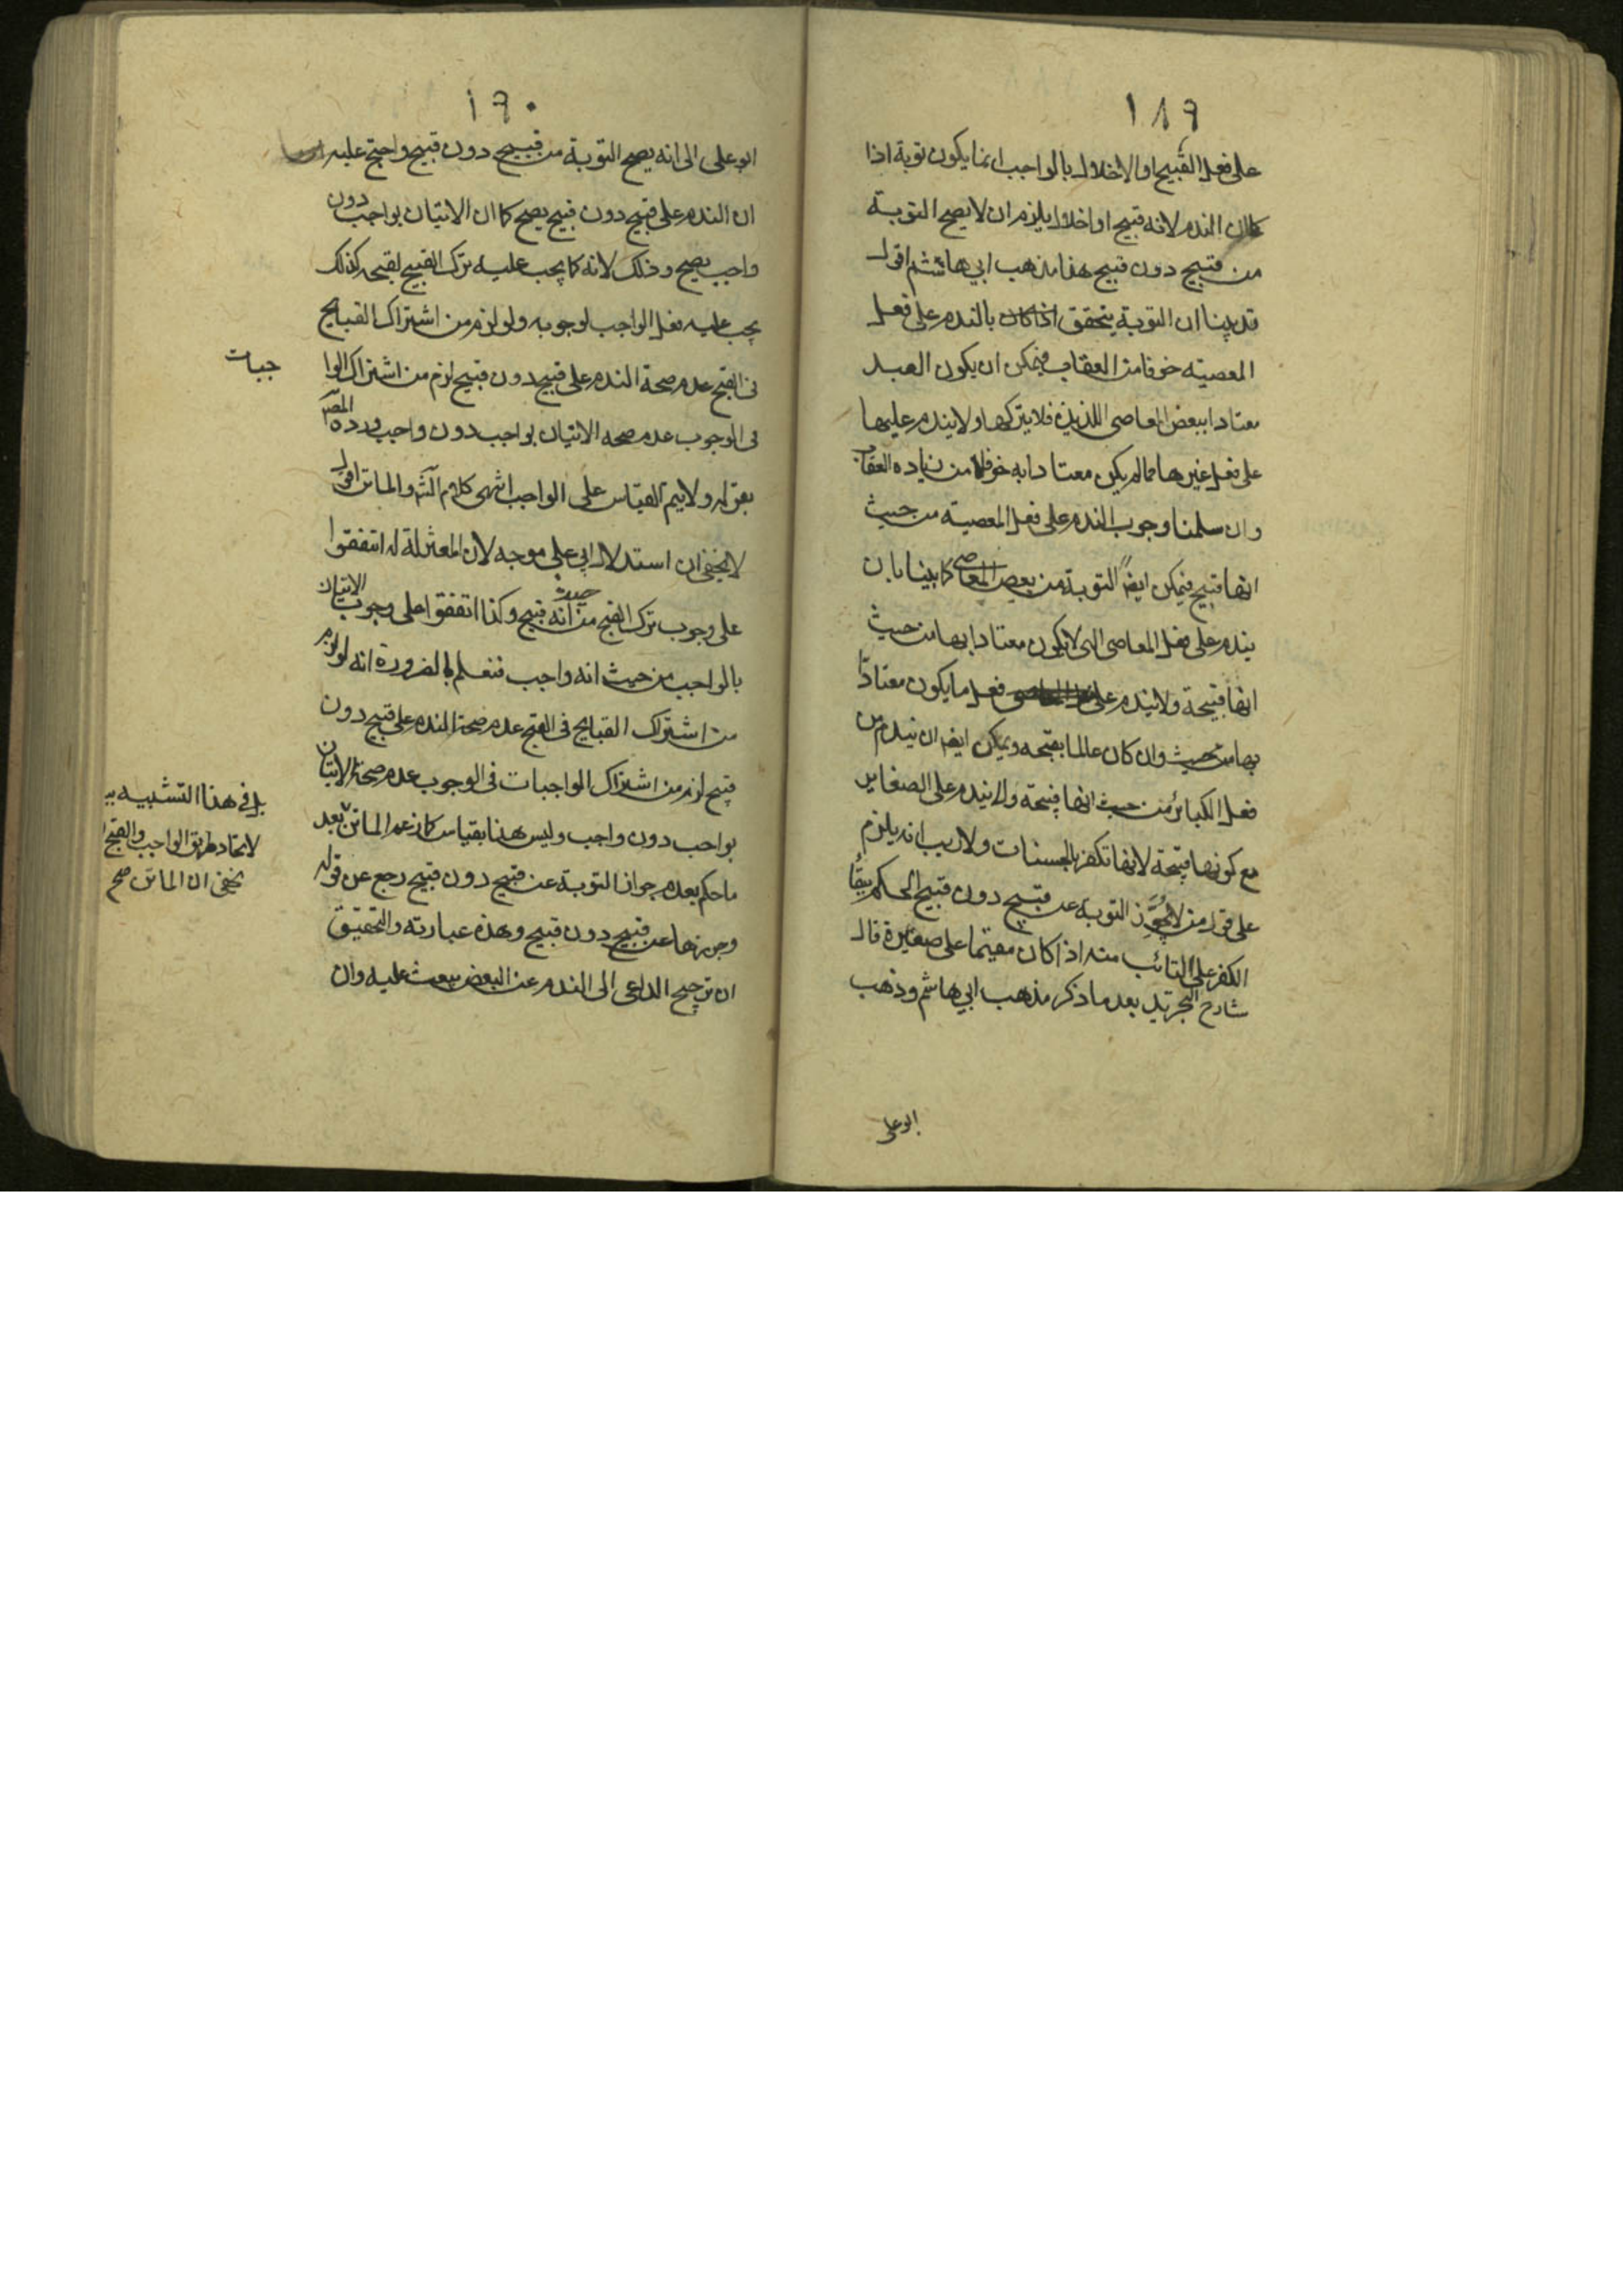 ١٨٩
على فعل القبيح او الاخلال بالواجب انما يكون توبة اذا
كان الندم لانه قبيح او اخلال يلزم ان لا يصح التوبة
من قبيح دون قبيح هذا مذهب ابي هاشم اقول
قد بينا ان التوبة يتحقق اذا كان بالندم على فعل
المعصية خوفا من العقاب فيمكن ان يكون العبد
معتادا ببعض المعاصى اللذيذة فلا يتركها ولا يندم عليها
على فعل غيرها مما لم يكن معتادا به خوفا من زيادة العقاب
وان سلمنا وجوب الندم على فعل المعصية من حيث
انها قبيح فيمكن ايضً التوبة من بعض المعاصى كما بينا بان
يندم على فعل المعاصى التى لا يكون معتادا بها من حيث
انها قبيحة ولا يندم على فعل ما يكون معتادًا
بها من حيث وان كان عالما بقبحه ويمكن ايضا ان يندم من
فعل الكبائر من حيث انها قبيحة ولا يندم على الصغاير
مع كونها قبيحة لانها تكفر بالحسنات ولا ريب انه يلزم
على قول من لا يجوّز التوبة عن قبيح دون قبيح الحكم ببقاء
الكفر على التائب منه اذا كان مقيما على صغيرة قال
شارح التجريد بعد ما ذكر مذهب ابي هاشم وذهب
ابو على
١٩٠
ابو على الى انه يصح التوبة من قبيح دون قبيح واحتج عليه
ان الندم على قبيح دون قبيح يصح كما ان الاتيان بواجب دون
واجب يصح وذلك لانه كما يجب عليه ترك القبيح لقبحه كذلك
يجب عليه فعل الواجب لوجوبه ولو لزم من اشتراك القبايح
فى القبح عدم صحة الندم على قبيح دون قبيح لزم من اشتراك الوا
جبات
فى الوجوب عدم صحه الاتيان بواجب دون واجب ورده المصـ
بقوله ولا يتم القياس على الواجب انتهى كلام الشـ والماتن اقول
لا يخفى ان استدلال ابي على موجه لان المعتزلة لما اتفقوا
على وجوب ترك القبح من حيث انه قبيح وكذا اتفقوا على وجوب الاتيان
بالواجب من حيث انه واجب فنعلم بالضرورة انه لو لزم
من اشتراك القبايح فى القبح عدم صحة الندم على قبيح دون
قبيح لزم من اشتراك الواجبات فى الوجوب عدم صحة الاتيان
بواجب دون واجب وليس هذا بقياس كما زعم الماتن بعد
ما حكم بعدم جواز التوبة عن قبيح دون قبيح رجع عن قوله
وجوزها عن قبيح دون قبيح وهذه عبارته والتحقيق
ان ترجيح الداعى الى الندم عن البعض يبعث عليه وان
بل فى هذا التشبيه
لاتحاد طريق الواجب والقبح
يخفى ان الماتن صح